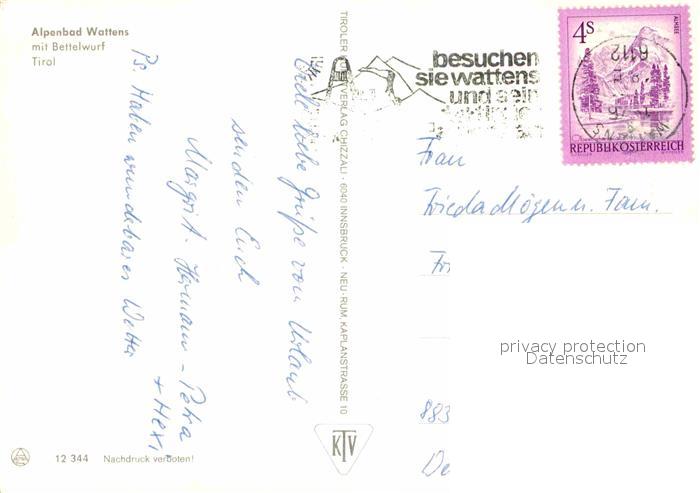 Alpenbad Wattens
mit Bettelwurf
Tirol
Viele liebe Grüße vom Urlaub
senden Euch
Margrit. Hermann - Petra
+ Hexi
Ps. Haben wunderbares Wetter
12 344 Nachdruck verboten!
TIROLER VERLAG CHIZZALI · 6040 INNSBRUCK · NEU-RUM, KAPLANSTRASSE 10
KTV
besuchen
sie wattens
und sein
4S
ALMSEE
REPUBLIK ÖSTERREICH
6112
Frau
Frieda Mögen u. Fam.
Fr
883
De
privacy protection
Datenschutz